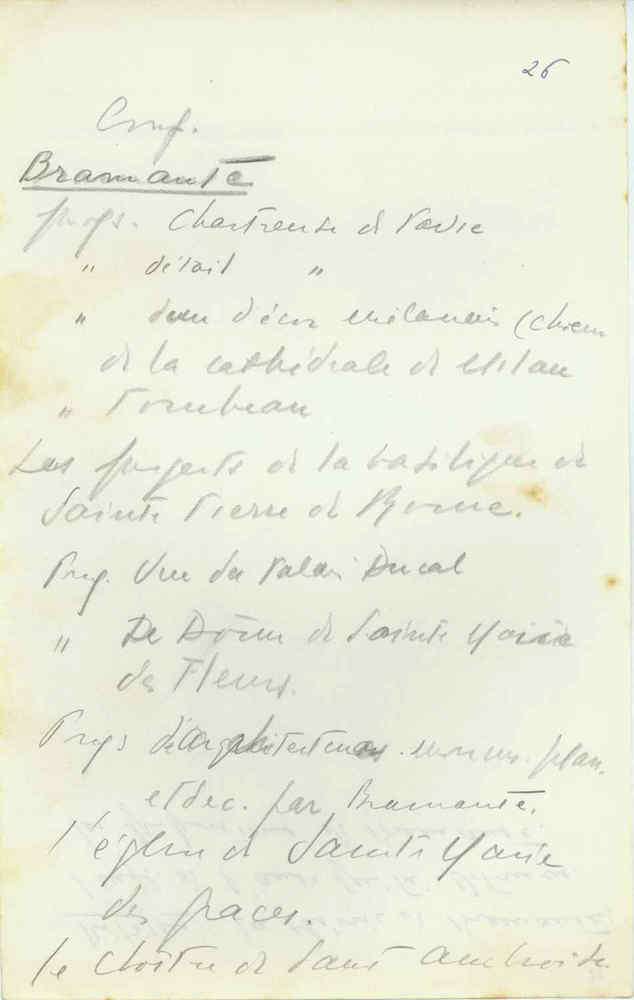 26
Conf.
Bramante
projs. Chartreuse de Pavie
" détail "
" d'un décor milanais (choeur
de la cathédrale de Milan
" Tombeau
Les projets de la basilique de
Sainte Pierre de Rome.
Proj. Vue du Palais Ducal
" Le Dôme de Sainte Marie
des Fleurs.
Projs d'architectures plan.
et déc. par Bramante.
l'église de Sainte Marie
des graces.
le cloître de Saint Ambroise